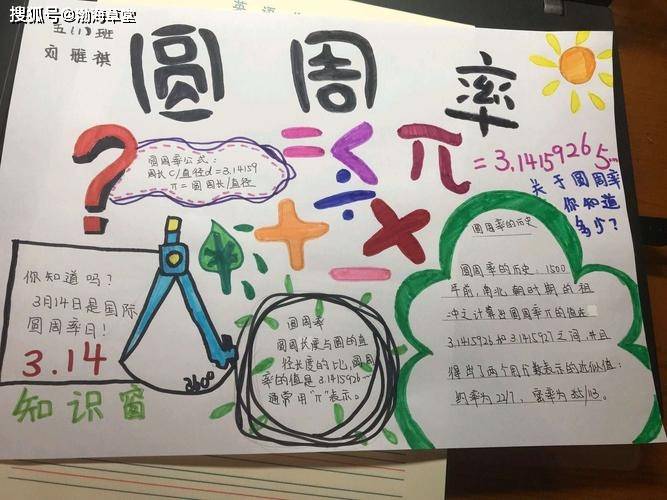 搜狐号@渤海草堂
英语
五(1)班
刘雁祺
圆周率
圆周率公式:
周长C/直径d=3.14159
π=圆周长/直径
?
= < ÷ + × −
π=3.1415926 5…
关于圆周率
你知道
多少?
你知道吗?
3月14日是国际
圆周率日!
3.14
360°
知识窗
圆周率
圆周长度与圆的直
径长度的比,圆周
率的值是3.1415926…
通常用“π”表示。
圆周率的历史
圆周率的历史:1500
年前,南北朝时期的祖
冲之计算出圆周率π的值在
3.1415926和3.1415927之间,并且
得出了两个用分数表示的近似值:
约率为22/7,密率为355/113。